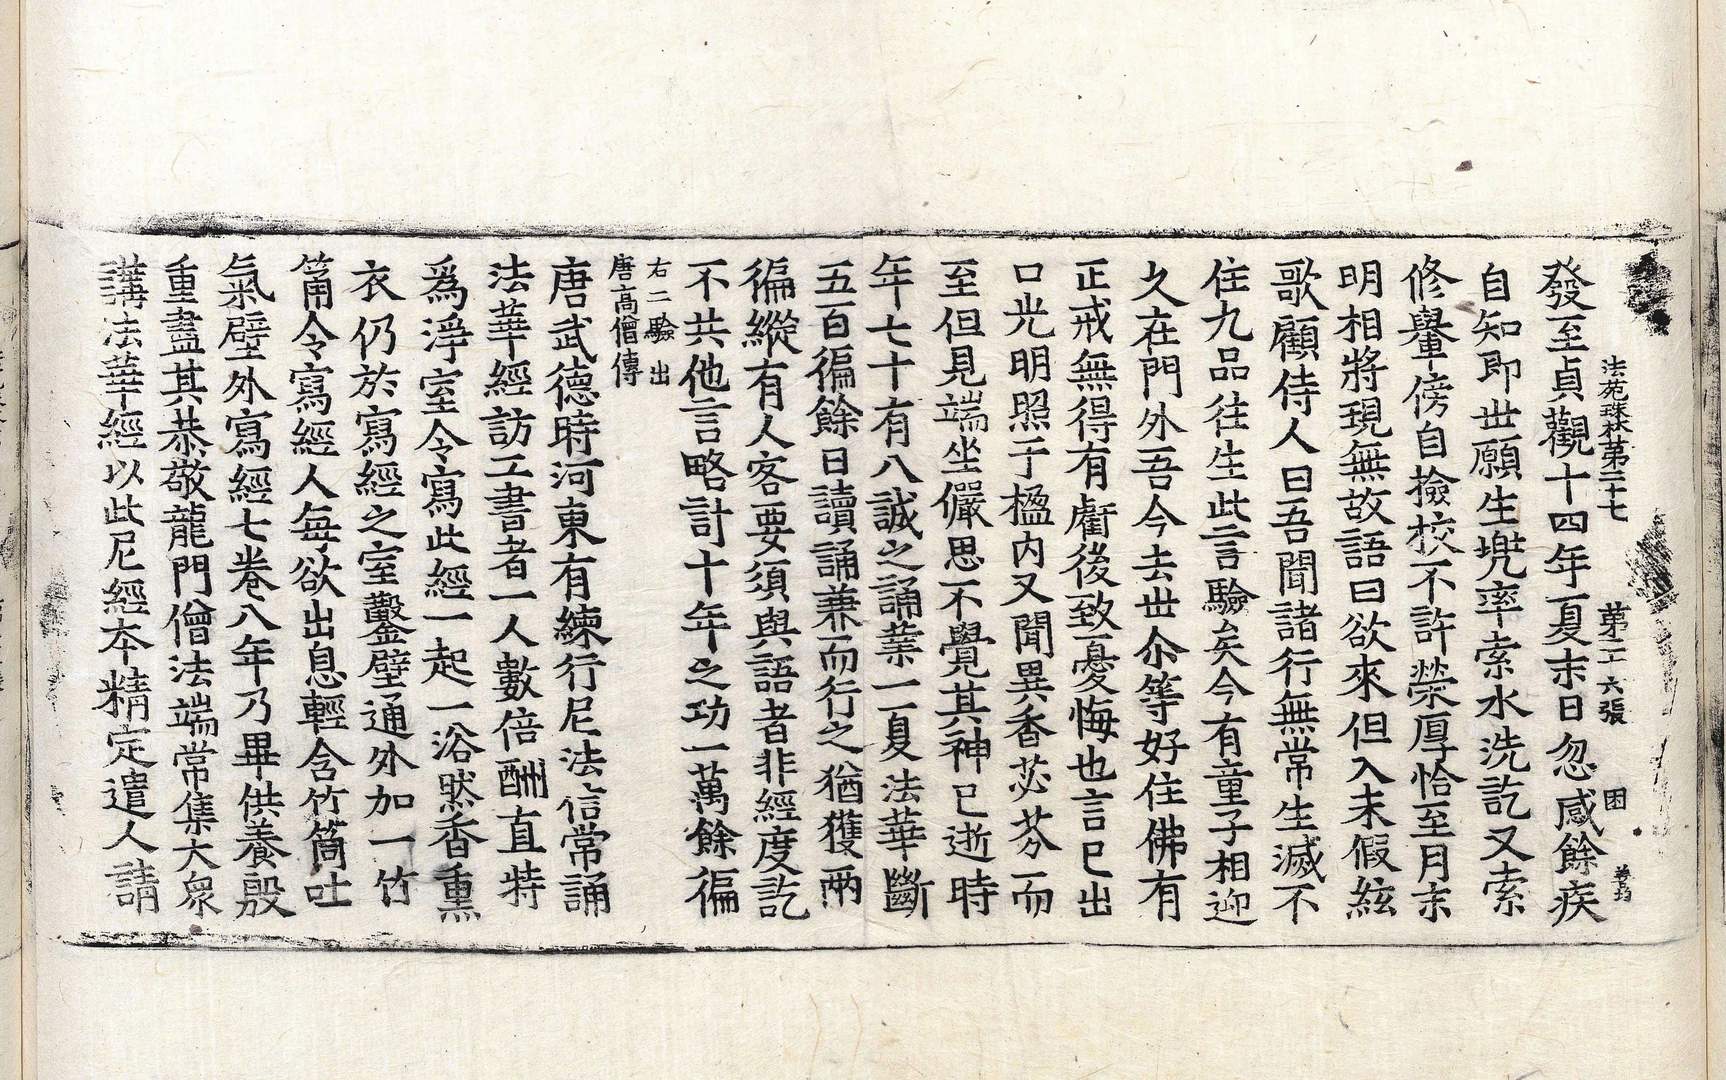 法苑珠林第二十七 第二六張 困
發至貞觀十四年夏末日忽感餘疾
自知即世願生兠率索水洗訖又索
修轝傍自撿挍不許榮厚恰至月末
明相將現無故語曰欲來但入未假絃
歌顧侍人曰吾聞諸行無常生滅不
住九品往生此言驗矣今有童子相迎
久在門外吾今去世尒等好住佛有
正戒無得有虧後致憂悔也言已出
口光明照于楹内又聞異香苾芬而
至但見端坐儼思不覺其神已逝時
年七十有八誠之誦業一夏法華斷
五百徧餘日讀誦兼而行之猶獲兩
徧縱有人客要須與語者非經度訖
不共他言略計十年之功一萬餘徧
右二驗出
唐高僧傳
唐武德時河東有練行尼法信常誦
法華經訪工書者一人數倍酬直特
爲淨室令寫此經一起一浴然香熏
衣仍於寫經之室鑿壁通外加一竹
筩令寫經人每欲出息輕含竹筒吐
氣壁外寫經七卷八年乃畢供養殷
重盡其恭敬龍門僧法端常集大衆
講法華經以此尼經本精定遣人請